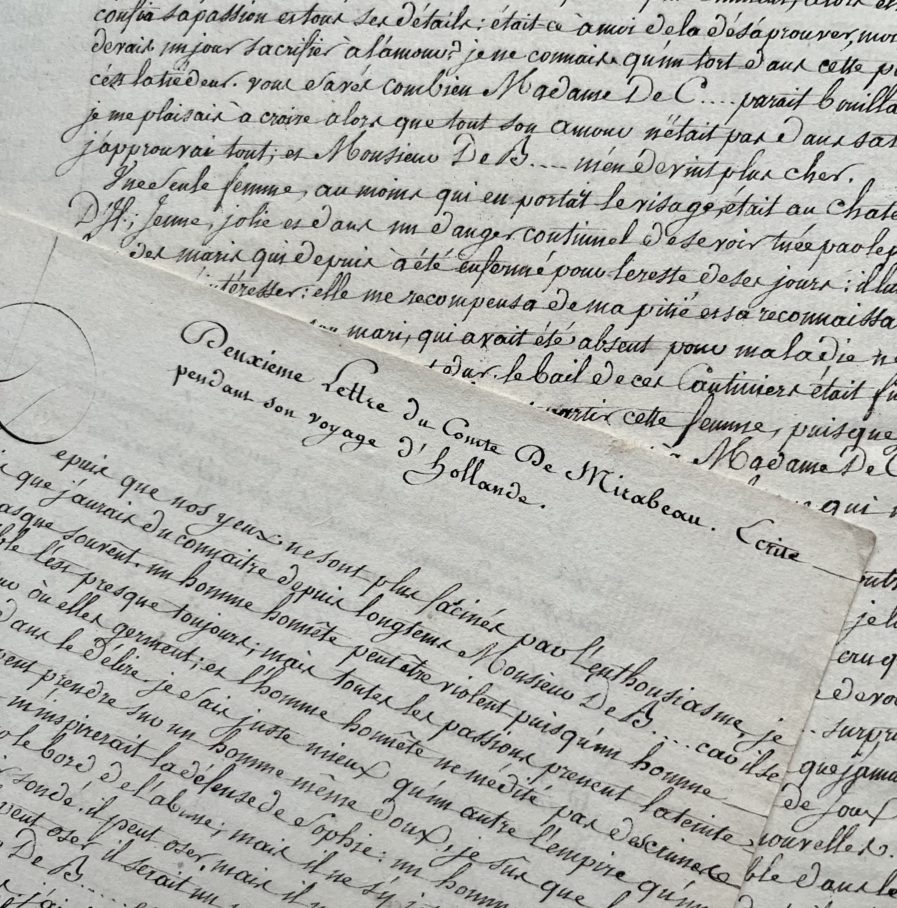 confia sa passion et tous ses détails: était-ce à moi de la désaprouver, moi
devais un jour sacrifier à l'amour? je ne connais qu'un tort dans cette
c'ést la tiédeur. vous savés combien Madame De C.... parait bouilla
je me plaisais à croire alors que tout son amour n'était pas dans sa
j'approuvai tout; et Monsieur De B.... m'en dévint plus cher.
Une seule femme, au moins qui en portât le visage, était au Chate
D'If; jeune, jolie et dans un danger continuel de se voir tuée par le
des maris qui depuis a été enfermé pour le reste de ses jours: il
intéresser: elle me recompensa de ma pitié et sa reconnaissa
mari, qui avait été absent pour maladie
le bail de ces Cantiniers était
partir cette femme, puisque
Madame De C
qui
Deuxieme Lettre du Comte De Mirabeau. Ecrite
pendant son voyage d'Hollande.
epuis que nos yeux ne sont plus facinés par l'enthousiasme, je
que j'aurais du connaitre depuis longtems Monsieur De B.... car il se
presque souvent. un homme honnête peut être violent puisqu'un homme
l'est presque toujours; mais toutes les passions prenent la teinte
où elles germent; et l'homme honnête ne médite pas des crimes
dans le délire. je sais juste mieux qu'un autre l'empire qu'un
prendre sur un homme même doux, je sûr que
m'inspirerait la défense de Sophie: un homme
le bord de l'abyme; mais il ne s'y
sondé. il peut oser mais il
peut oser il serait un
De B....
je l
cru q
de vo
surpri
que jama
de joux
nouvelles.
ble dans le